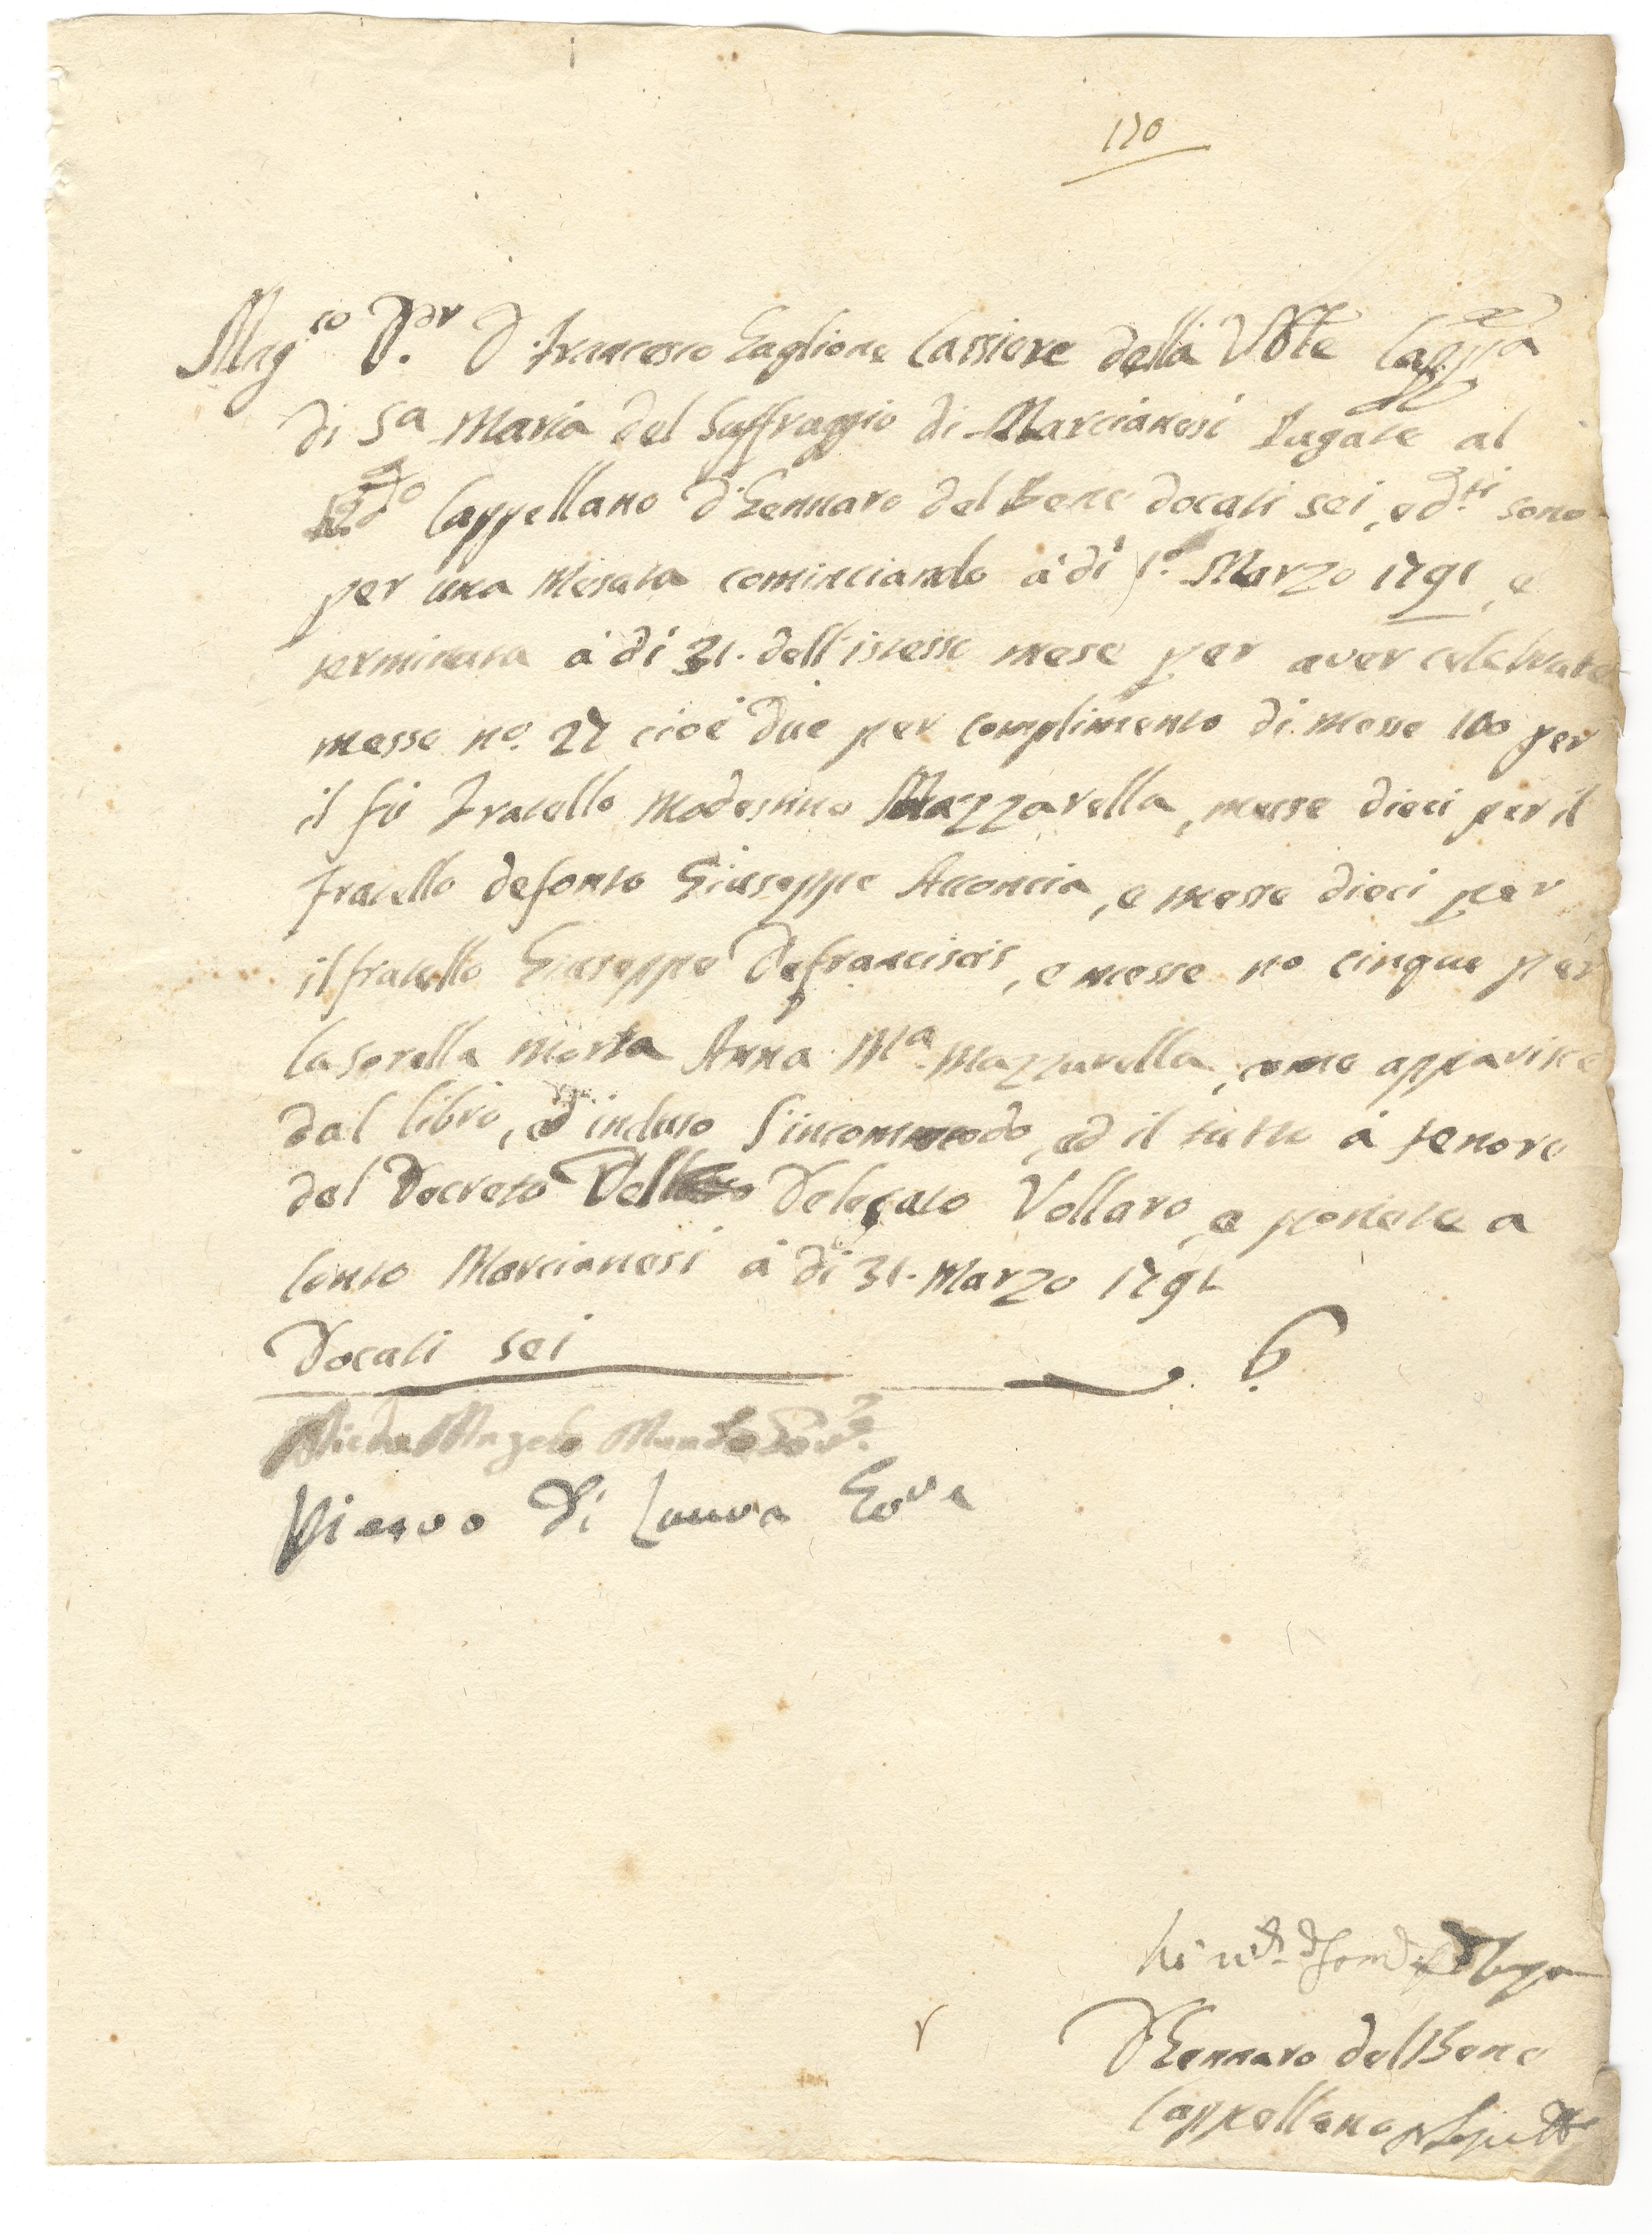 170
Mag.co D.or D. Francesco Zaglione Cassiere della Vble Cappa
di Sa Maria del Suffraggio di Marcianesi Pagate al
Rdo Cappellano D. Gennaro del Bene docati sei, e d.ti sono
per una Mesata cominciando á dí p.º Marzo 1791, e
terminata á dí 31. dell'istesso mese per aver celebrate
messe no. 27 cioé due per complimento di messe 100 per
il fú Fratello Modestino Mazzarella, messe dieci per il
fratello defonto Giuseppe Acconcia, e messe dieci per
il fratello Giuseppe Defranciscis, e messe no cinque per
la sorella morta Anna Ma Mazzarella, come apparisce
dal libro, ed incluso l'incommodo, ed il tutto á tenore
del Decreto Del Delegato Vollaro, e ponete a
Conto Marcianesi á dí 31. Marzo 1791
Docati sei 6.
Michel'Angelo
Pietro Di Laura Gove
D Gennaro del Bene
Cappellano